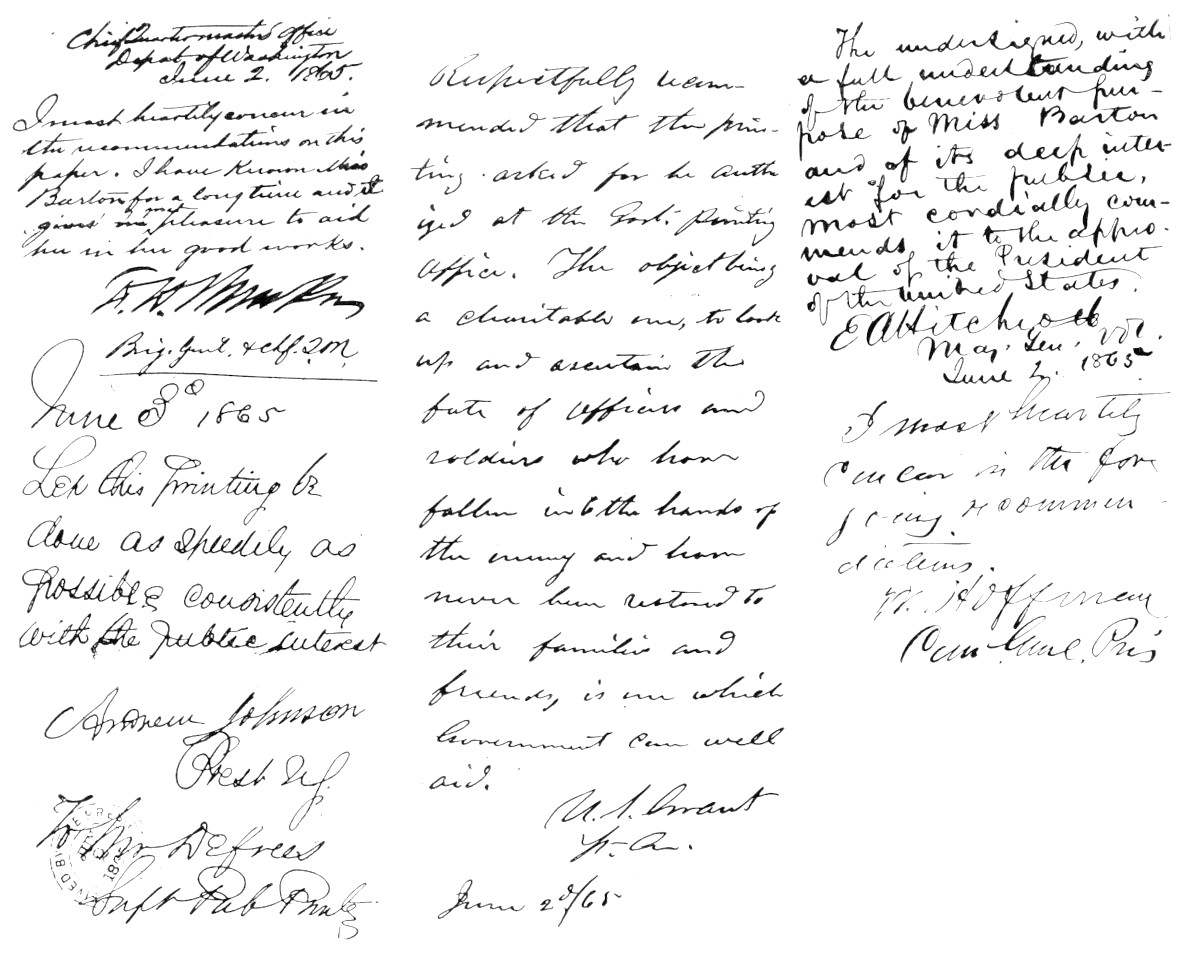 Chief Quartermaster's Office
Depot of Washington
June 2. 1865.
I most heartily concur in
the recommendations on this
paper. I have Known Miss
Barton for a long time and it
gives me great pleasure to aid
her in her good works.
Brig. Genl. & Chf. Q.M.
June 3d 1865
Let this Printing be
done as speedily as
possible consistently
with the public interest
Andrew Johnson
Prest US.
To Mr Defrees
Supt Pub Printg
Respectfully recom-
mended that the prin-
ting asked for be autho
ized at the Govt. printing
Office. The object being
a charitable one, to look
up and ascertain the
fate of officers and
soldiers who have
fallen into the hands of
the enemy and have
never been restored to
their families and
friends, is one which
Government can well
aid.
U. S. Grant
Lt. Gn.
June 2d/65
The undersigned, with
a full understanding
of the benevolent pur-
pose of Miss Barton
and of its deep inter-
est for the public,
most cordially com-
mends it to the appro-
val of the President
of the United States.
E A Hitchcock
Maj. Gen. Vol.
June 2. 1865
I most heartily
concur in the fore
going recommen
dations.
W. Hoffman
Com Genl. Pris